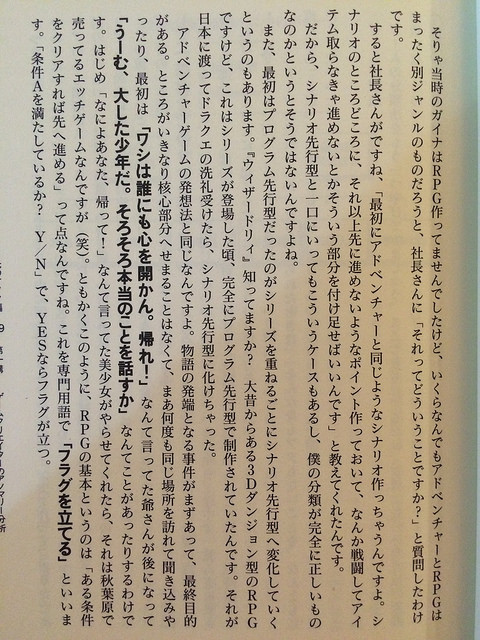 そりゃ当時のガイナはRPG作ってませんでしたけど、いくらなんでもアドベンチャーとRPGは
まったく別ジャンルのものだろうと、社長さんに「それってどういうことですか?」と質問したわけ
です。
すると社長さんがですね、「最初にアドベンチャーと同じようなシナリオ作っちゃうんですよ。シ
ナリオのところどころに、それ以上先に進めないようなポイント作っておいて、なんか戦闘してアイ
テム取らなきゃ進めないとかそういう部分を付け足せばいいんです」と教えてくれたんです。
だから、シナリオ先行型と一口にいってもこういうケースもあるし、僕の分類が完全に正しいもの
なのかというとそうではないんですよね。
また、最初はプログラム先行型だったのがシリーズを重ねるごとにシナリオ先行型へ変化していく
というのもあります。『ウィザードリィ』知ってますか? 大昔からある3Dダンジョン型のRPG
ですけど、これはシリーズが登場した頃、完全にプログラム先行型で制作されていたんです。それが
日本に渡ってドラクエの洗礼受けたら、シナリオ先行型に化けちゃった。
アドベンチャーゲームの発想法と同じなんですよ。物語の発端となる事件がまずあって、最終目的
がある。ところがいきなり核心部分へせまることはなくて、まあ何度も同じ場所を訪れて聞き込みや
ったり、最初は「ワシは誰にも心を開かん。帰れ!」なんて言ってた爺さんが後になって
「うーむ、大した少年だ。そろそろ本当のことを話すか」なんてことがあったりするわけで
す。はじめ「なによあなた、帰って!」なんて言ってた美少女がやらせてくれたら、それは秋葉原で
売ってるエッチゲームなんですが(笑)。ともかくこのように、RPGの基本というのは「ある条件
をクリアすれば先へ進める」って点なんですね。これを専門用語で「フラグを立てる」といいま
す。「条件Aを満たしているか? Y/N」で、YESならフラグが立つ。